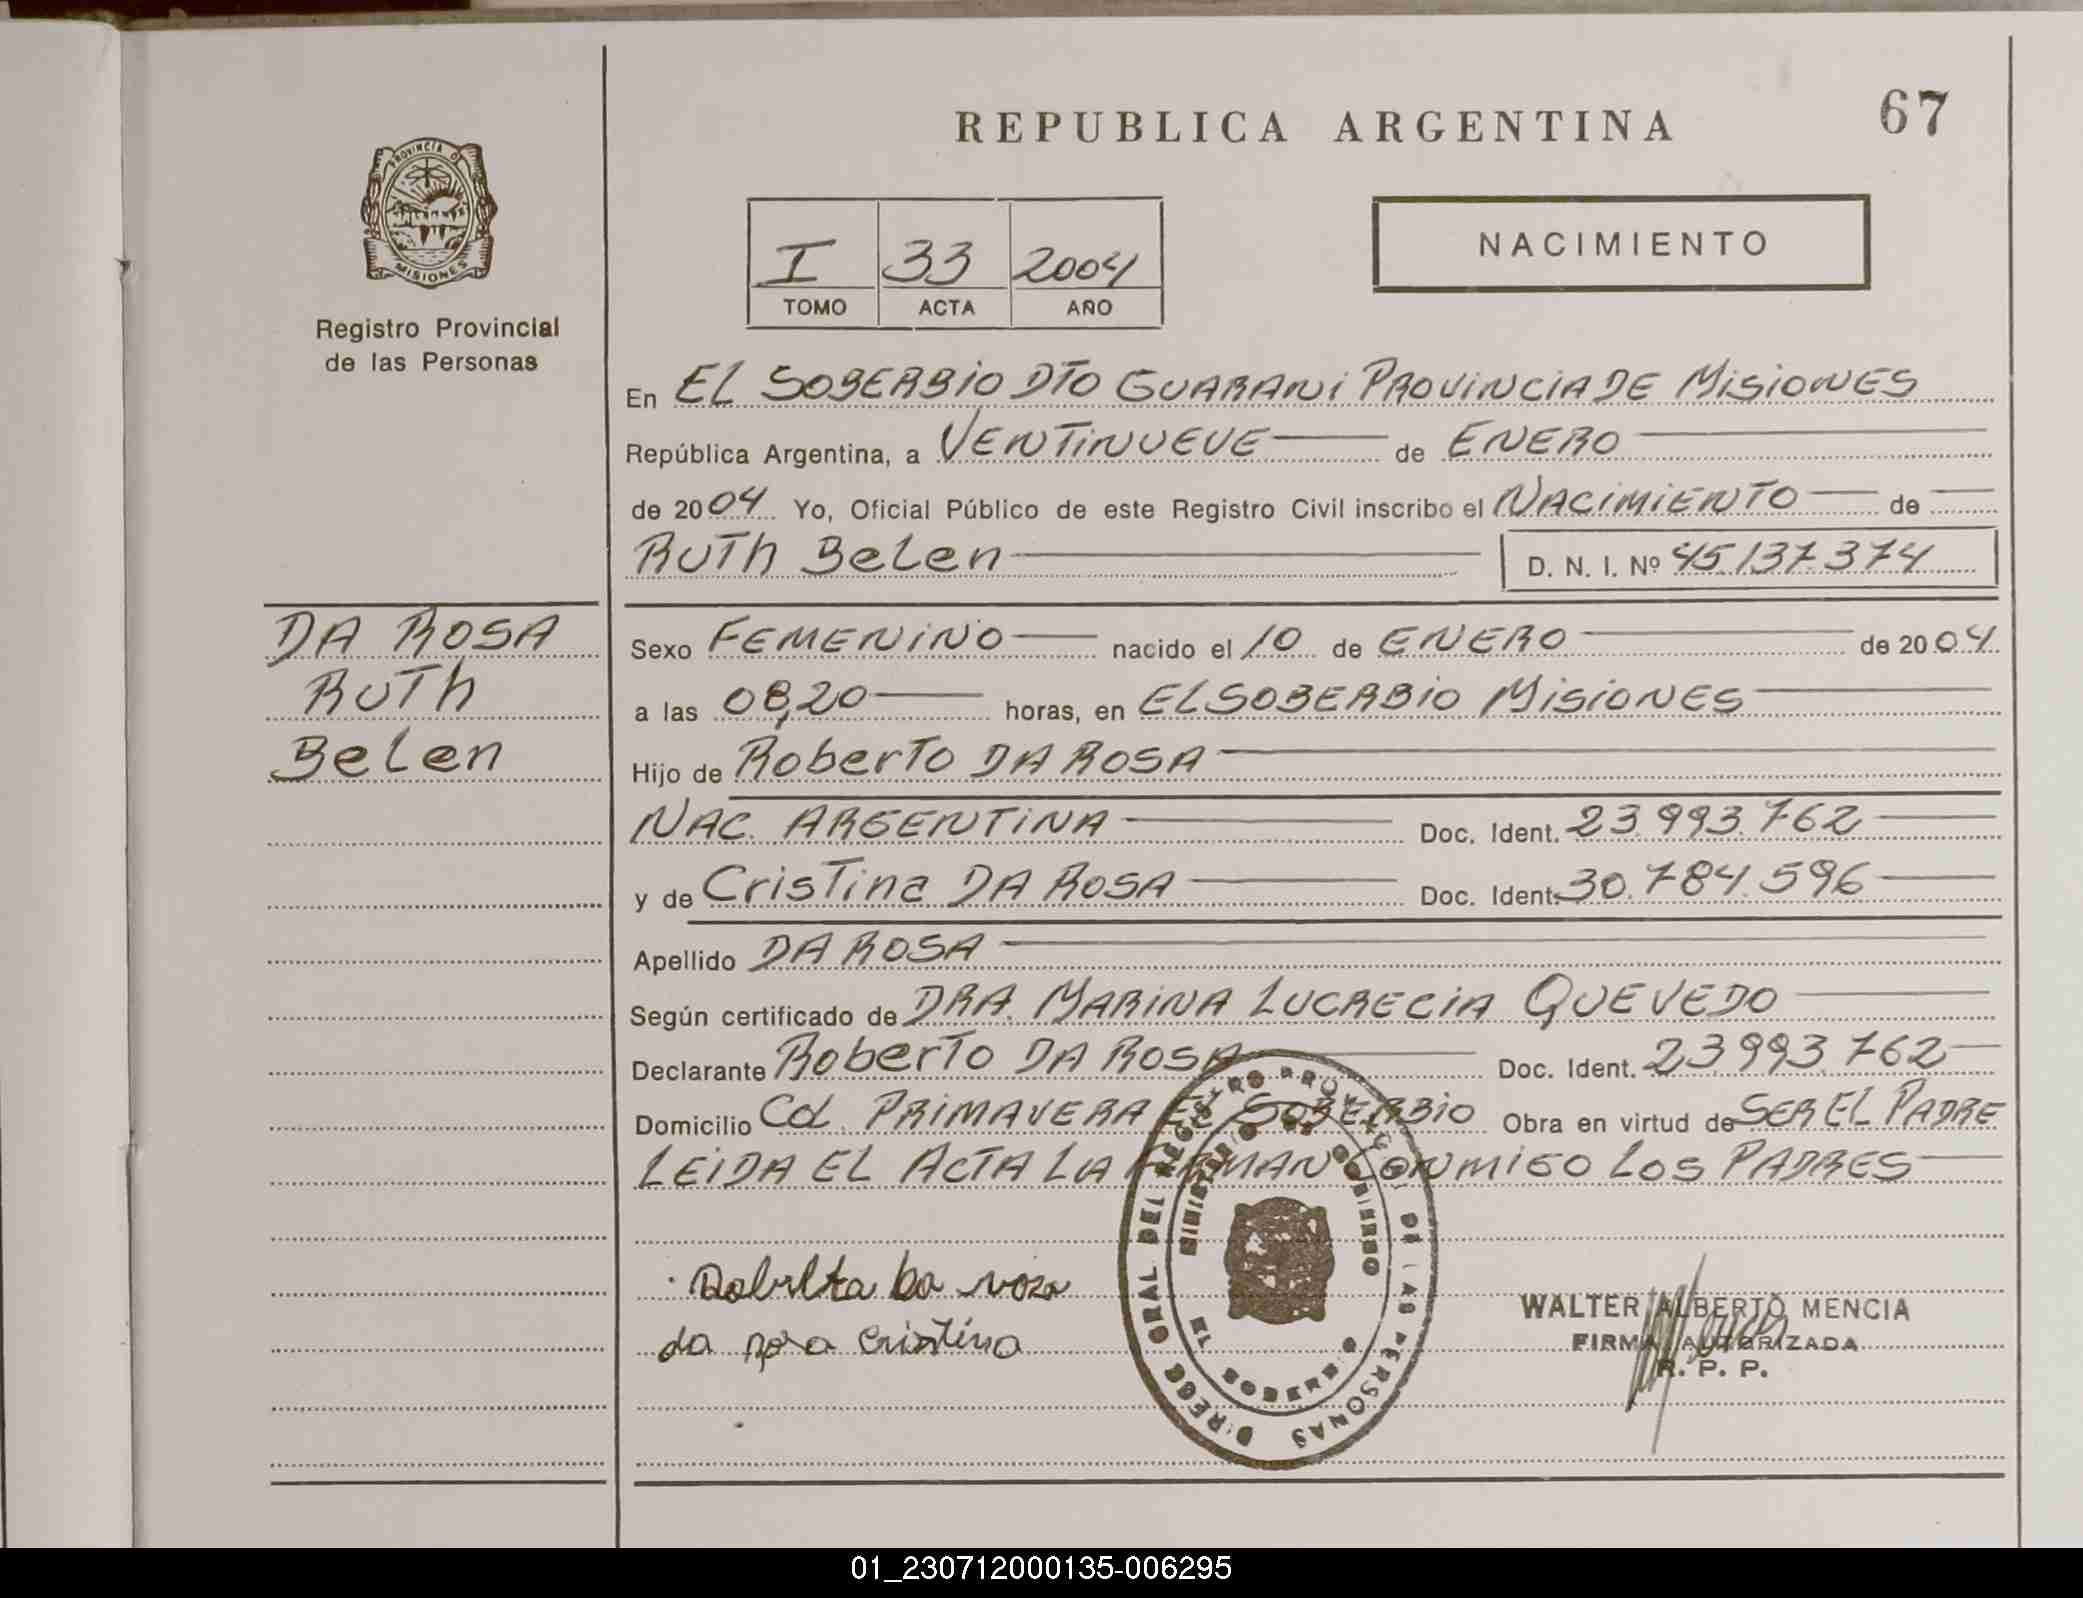 REPUBLICA ARGENTINA
67
PROVINCIA DE
MISIONES
Registro Provincial
de las Personas
I 33 2004
TOMO ACTA AÑO
NACIMIENTO
En EL SOBERBIO DTO GUARANI PROVINCIA DE MISIONES
República Argentina, a VENTINUEVE de ENERO
de 2004 Yo, Oficial Público de este Registro Civil inscribo el NACIMIENTO de
RUTH BELEN D. N. I. Nº 45.137.374
DA ROSA
RUTH
BELEN
Sexo FEMENINO nacido el 10 de ENERO de 2004
a las 08,20 horas, en EL SOBERBIO MISIONES
Hijo de Roberto DA ROSA
NAC. ARGENTINA Doc. Ident. 23.993.762
y de Cristina DA ROSA Doc. Ident. 30.784.596
Apellido DA ROSA
Según certificado de DRA. MARINA LUCRECIA QUEVEDO
Declarante Roberto DA ROSA Doc. Ident. 23.993.762
Domicilio Cd. PRIMAVERA EL SOBERBIO Obra en virtud de SER EL PADRE
LEIDA EL ACTA LA FIRMAN CONMIGO LOS PADRES
da rosa Cristina
DIRECC GRAL DEL REGISTRO PROVINCIAL DE LAS PERSONAS
MINISTERIO DE GOBIERNO
WALTER ALBERTO MENCIA
FIRMA AUTORIZADA
R. P. P.
01_230712000135-006295